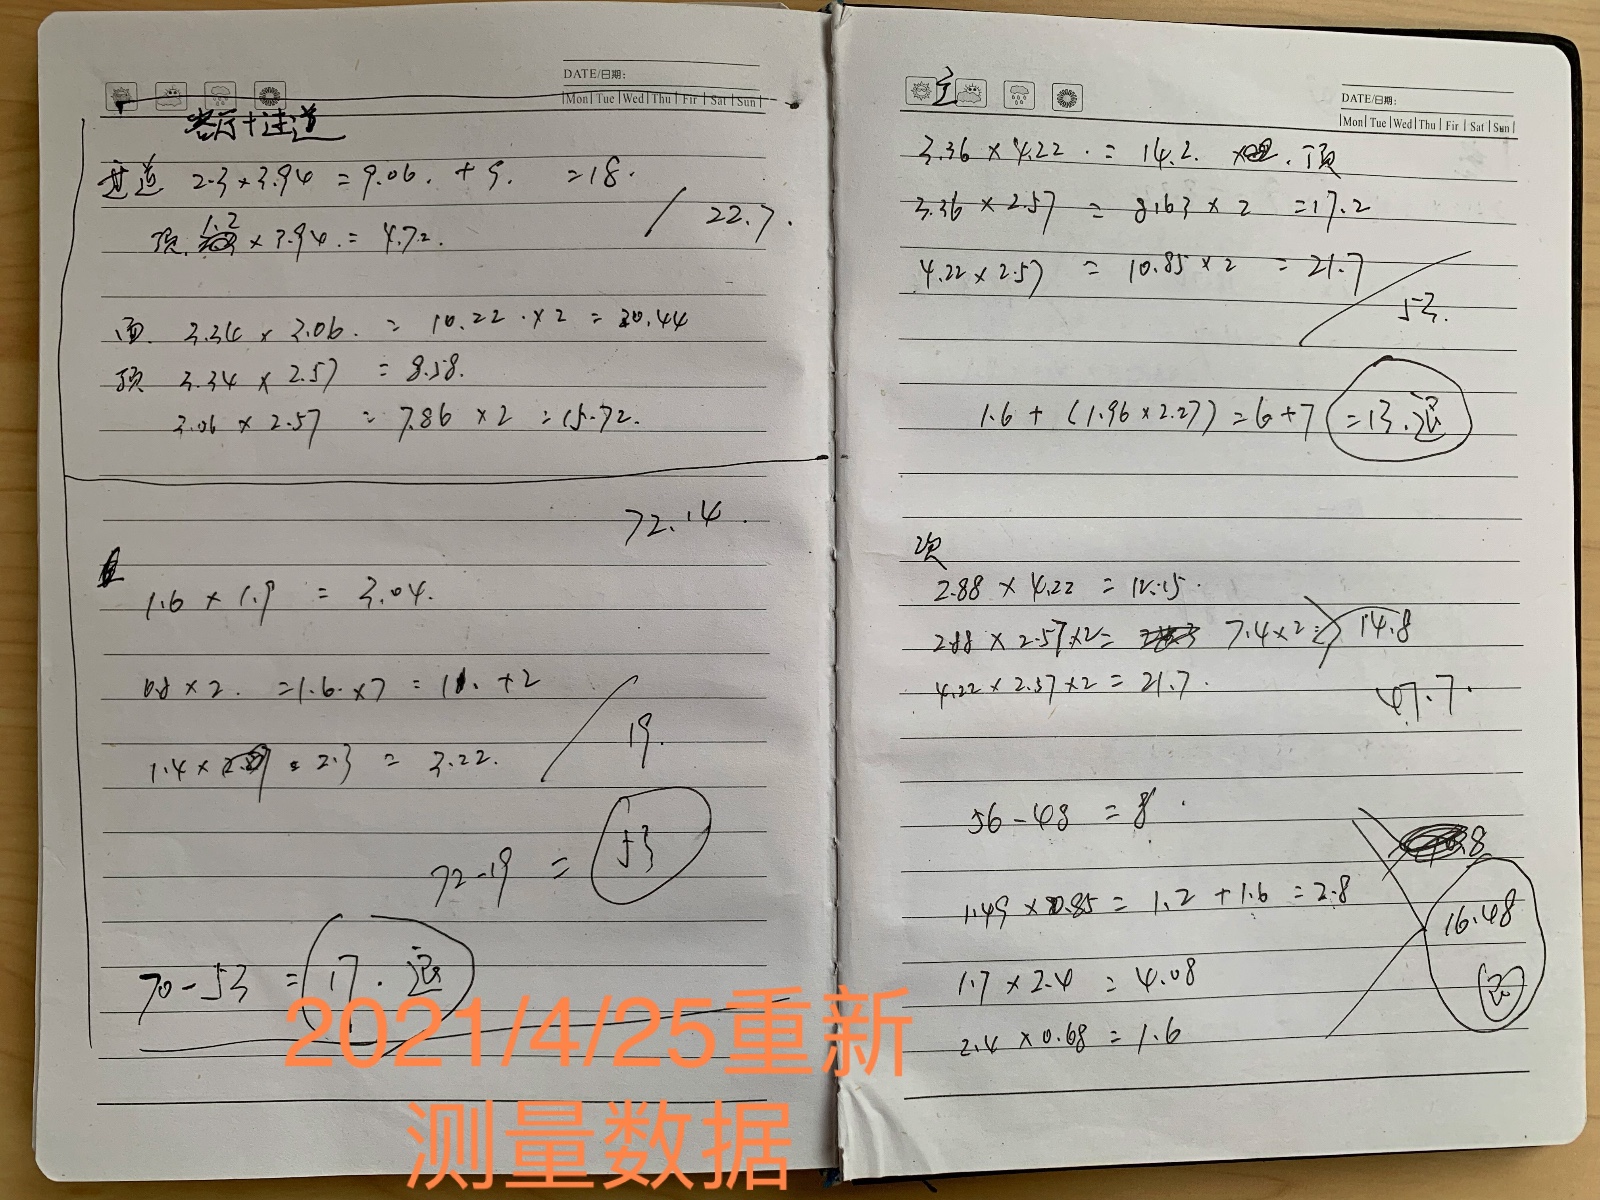 DATE/日期:
Mon Tue Wed Thu Fir Sat Sun
客厅+过道
过道 2.3×3.94 =9.06. +9. =18.
22.7.
顶. 1.2 ×3.94. = 4.72.
面. 3.34 × 3.06. = 10.22 .×2 = 20.44
顶 3.34 × 2.57 = 8.58.
3.06 × 2.57 = 7.86 ×2 =15.72.
72.14.
1.6 × 1.9 = 3.04.
0.8 ×2. =1.6.×7 = 11. +2
19.
1.4× 2.3 = 3.22.
72-19 = 53
70-53 =17. 退
DATE/日期:
Mon Tue Wed Thu Fir Sat Sun
主
3.36 × 4.22 . = 14.2. . 顶
3.36 × 2.57 = 8.63 × 2 =17.2
4.22 × 2.57 = 10.85 ×2 = 21.7
53.
1.6 + (1.96×2.27) =6+7 =13.退
次
2.88 × 4.22 = 12.15.
2.88 × 2.57×2= 7.4×2= 14.8
4.22 × 2.57 ×2 = 21.7.
47.7.
56-48 = 8.
8
1.49 ×0.85 = 1.2 +1.6 =2.8
16.48
1.7 × 2.4 = 4.08
退
2.4 ×0.68 = 1.6
2021/4/25重新
测量数据